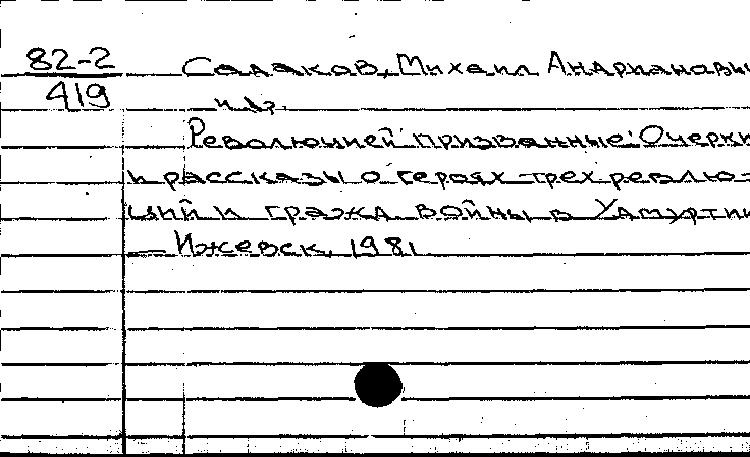 82-2 Садаков, Михаил Андрианович
419 и др.
Революцией призванные: Очерки
и рассказы о героях трех револю-
ций и гражд. войны в Удмуртии
— Ижевск, 1981